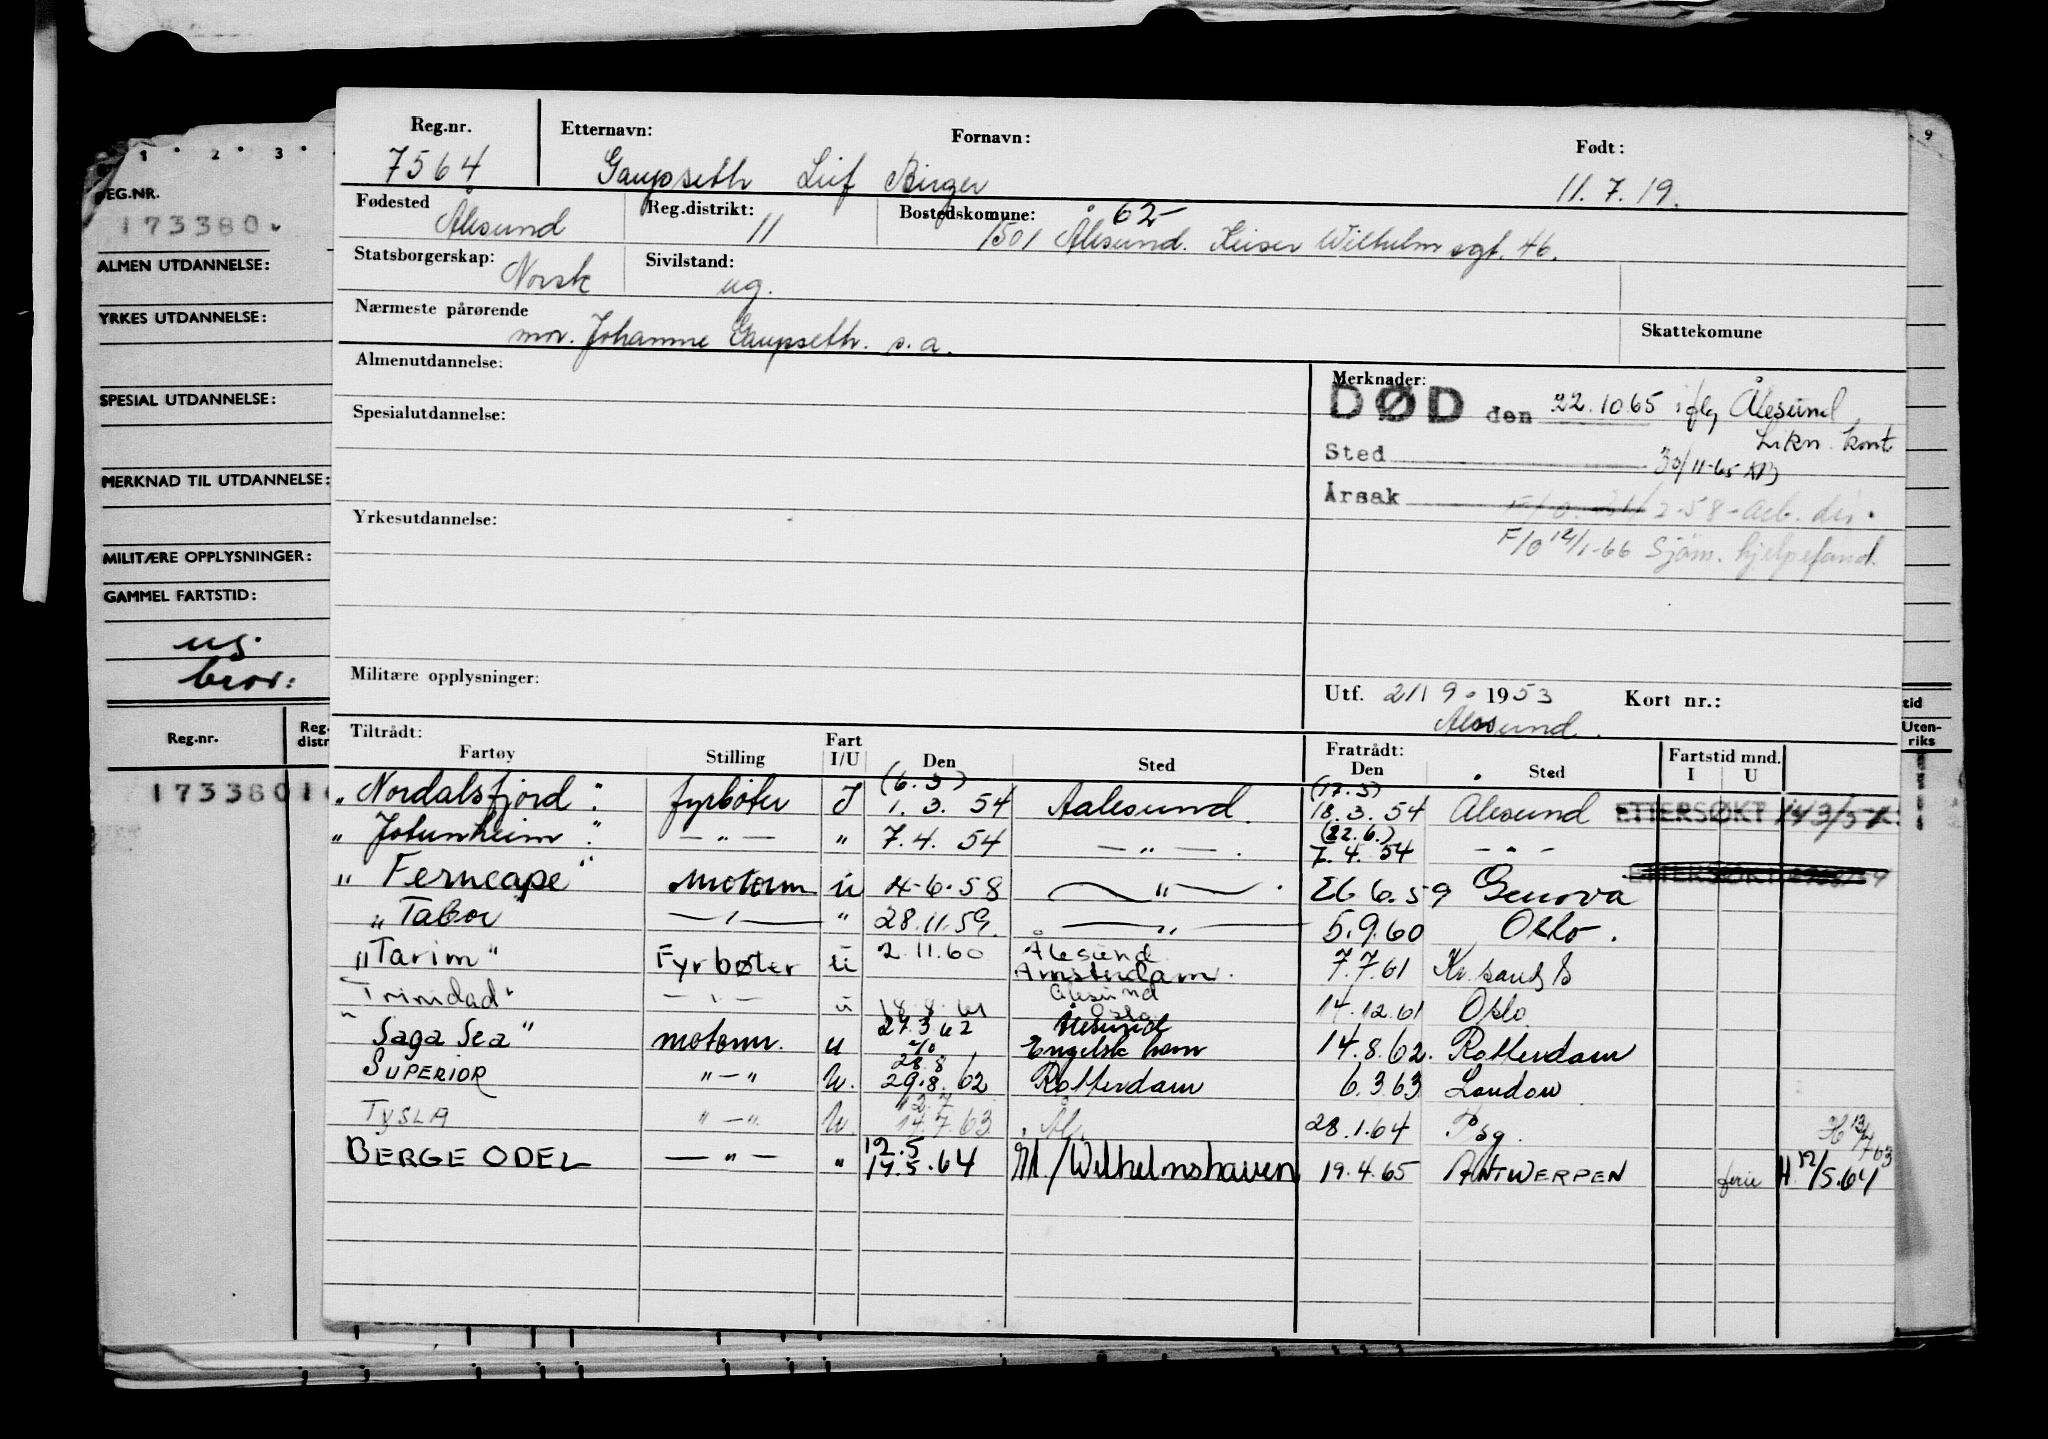 1 2 3 9
REG.NR.
173380
ALMEN UTDANNELSE:
YRKES UTDANNELSE:
SPESIAL UTDANNELSE:
MERKNAD TIL UTDANNELSE:
MILITÆRE OPPLYSNINGER:
GAMMEL FARTSTID:
ug.
bror:
Reg.nr. Reg. distr
173380 1
tid
Uten-
riks
Reg.nr. Etternavn: Fornavn: Født:
7564 Gaupseth Leif Birger 11.7.19.
Fødested Reg.distrikt: Bostedskomune: 62-
Ålesund 11 1501 Ålesund. Keiser Wilhelmsgt. 46.
Statsborgerskap: Sivilstand:
Norsk ug.
Nærmeste pårørende Skattekomune
mor. Johanne Gaupseth. s.a.
Almenutdannelse: Merknader:
DØD den 22.10 65 iflg Ålesund
Spesialutdannelse: Likn. kont
Sted 30/11-65
Årsak 2-58-
Yrkesutdannelse:
F/O 14/1-66 Sjøm. hjelpefond.
Militære opplysninger:
Utf. 21/9. 1953 Kort nr.:
Ålesund.
Tiltrådt: Fart Fratrådt: Fartstid mnd.
Fartøy Stilling I/U Den Sted Den Sted I U
(6.3) (17.3)
"Nordalsfjord". fyrbøter I 1.3.54 Aalesund. 18.3.54 Ålesund ETTERSØKT
(22.6.)
"Jotunheim". —"— " 7.4.54 —"—. 7.4.54 -"-
"Ferncape" motorm u 4.6.58 —"—. 26.6.59 Genova ETTERSØKT
"Tabor" —"— " 28.11.59. —"— 5.9.60 Oslo.
"Tarim" Fyrbøter u 2.11.60 Ålesund 7.7.61 Kr.sand S
Amsterdam.
"Trinidad" —"— u 18.8.61 Ålesund 14.12.61 Oslo
Oslo
27.3 62 Ålesund
"Saga Sea" motorm. u Engelsk havn 14.8.62. Rotterdam
28.8
SUPERIOR "—" U. 29.8.62 Rotterdam 6.3 63 London
12.7
TYSLA "—" U. 14.7.63 Ål. 28.1.64 Psg. H 12/7 63
12.5
BERGE ODEL —"— " 14.5.64 /Wilhelmshaven 19.4.65 ANTWERPEN ferie H 12/5.64